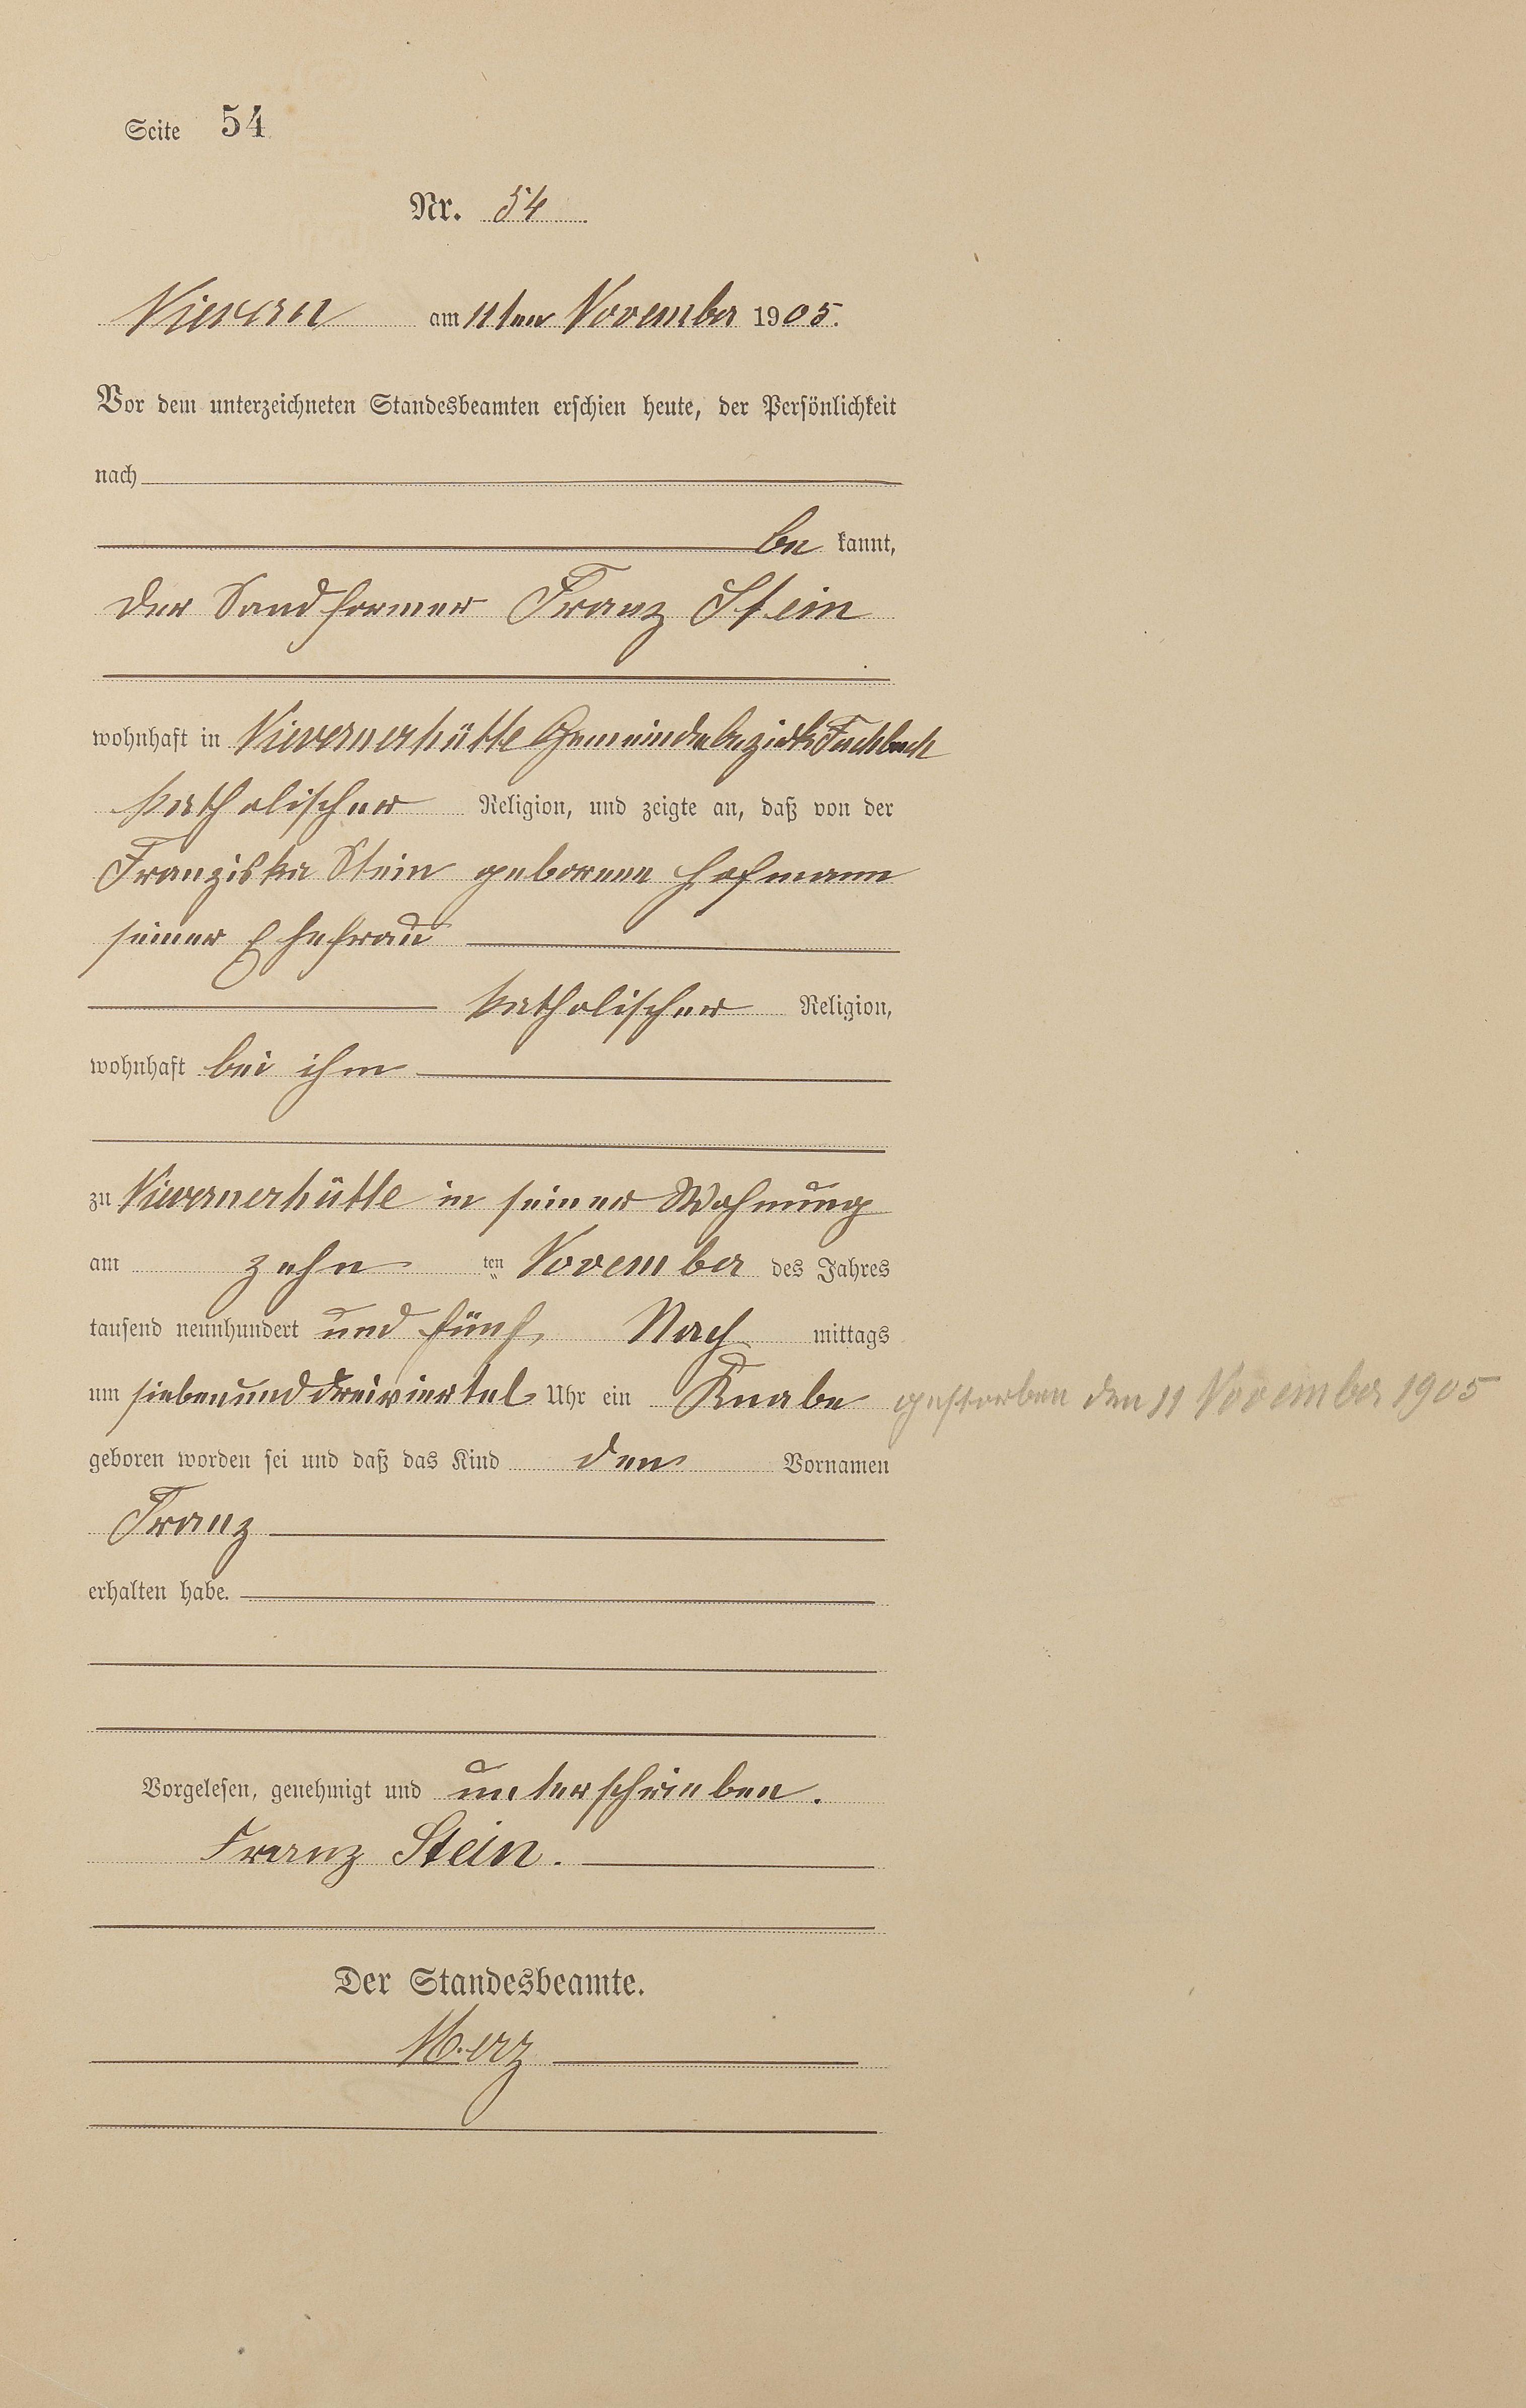 Seite 54
Nr. 54
Nievern am 11ten November 1905.
Vor dem unterzeichneten Standesbeamten erschien heute, der Persönlichkeit
nach
be kannt,
der Sandformer Franz Stein
wohnhaft in Nievernerhütte Gemeindebezirks Fachbach
katholischer Religion, und zeigte an, daß von der
Franziska Stein geborene Hofmann
seiner Ehefrau
katholischer Religion,
wohnhaft bei ihm
zu Nievernerhütte in seiner Wohnung
am zehn ten November des Jahres
tausend neunhundert und fünf, Nach mittags
um siebenunddreiviertel Uhr ein Knabe gestorben den 11 November 1905
geboren worden sei und daß das Kind den Vornamen
Franz
erhalten habe.
Vorgelesen, genehmigt und unterschrieben.
Franz Stein.
Der Standesbeamte.
Merz